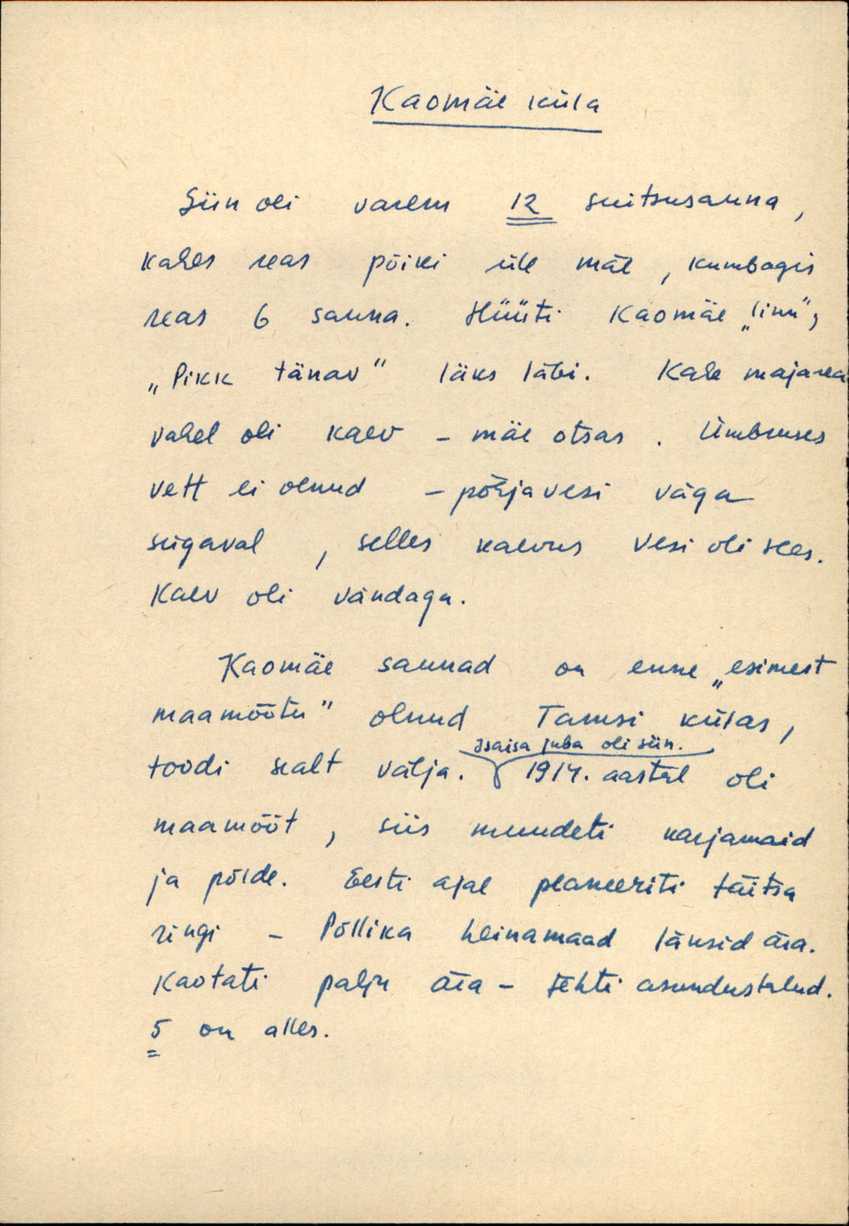 Kaomäe küla
Siin oli varem 12 suitsusauna,
kahes reas põiki üle mäe, kumbagis
reas 6 sauna. Hüüti Kaomäe „linn”,
„Pikk tänav” läks läbi. Kahe majarea
vahel oli kaev – mäe otsas. Ümbruses
vett ei olnud – põhjavesi väga
sügaval, selles kaevus vesi oli sees.
Kaev oli vändaga.
Kaomäe saunad on enne „esimest
maamõõtu” olnud Tamsi külas,
isaisa juba oli siin.
toodi sealt välja. 1914. aastal oli
maamõõt, siis muudeti karjamaid
ja põlde. Eesti ajal planeeriti täitsa
ringi – Põllika heinamaad läksid ära.
Kaotati palju ära – tehti asundustalud.
5 on alles.